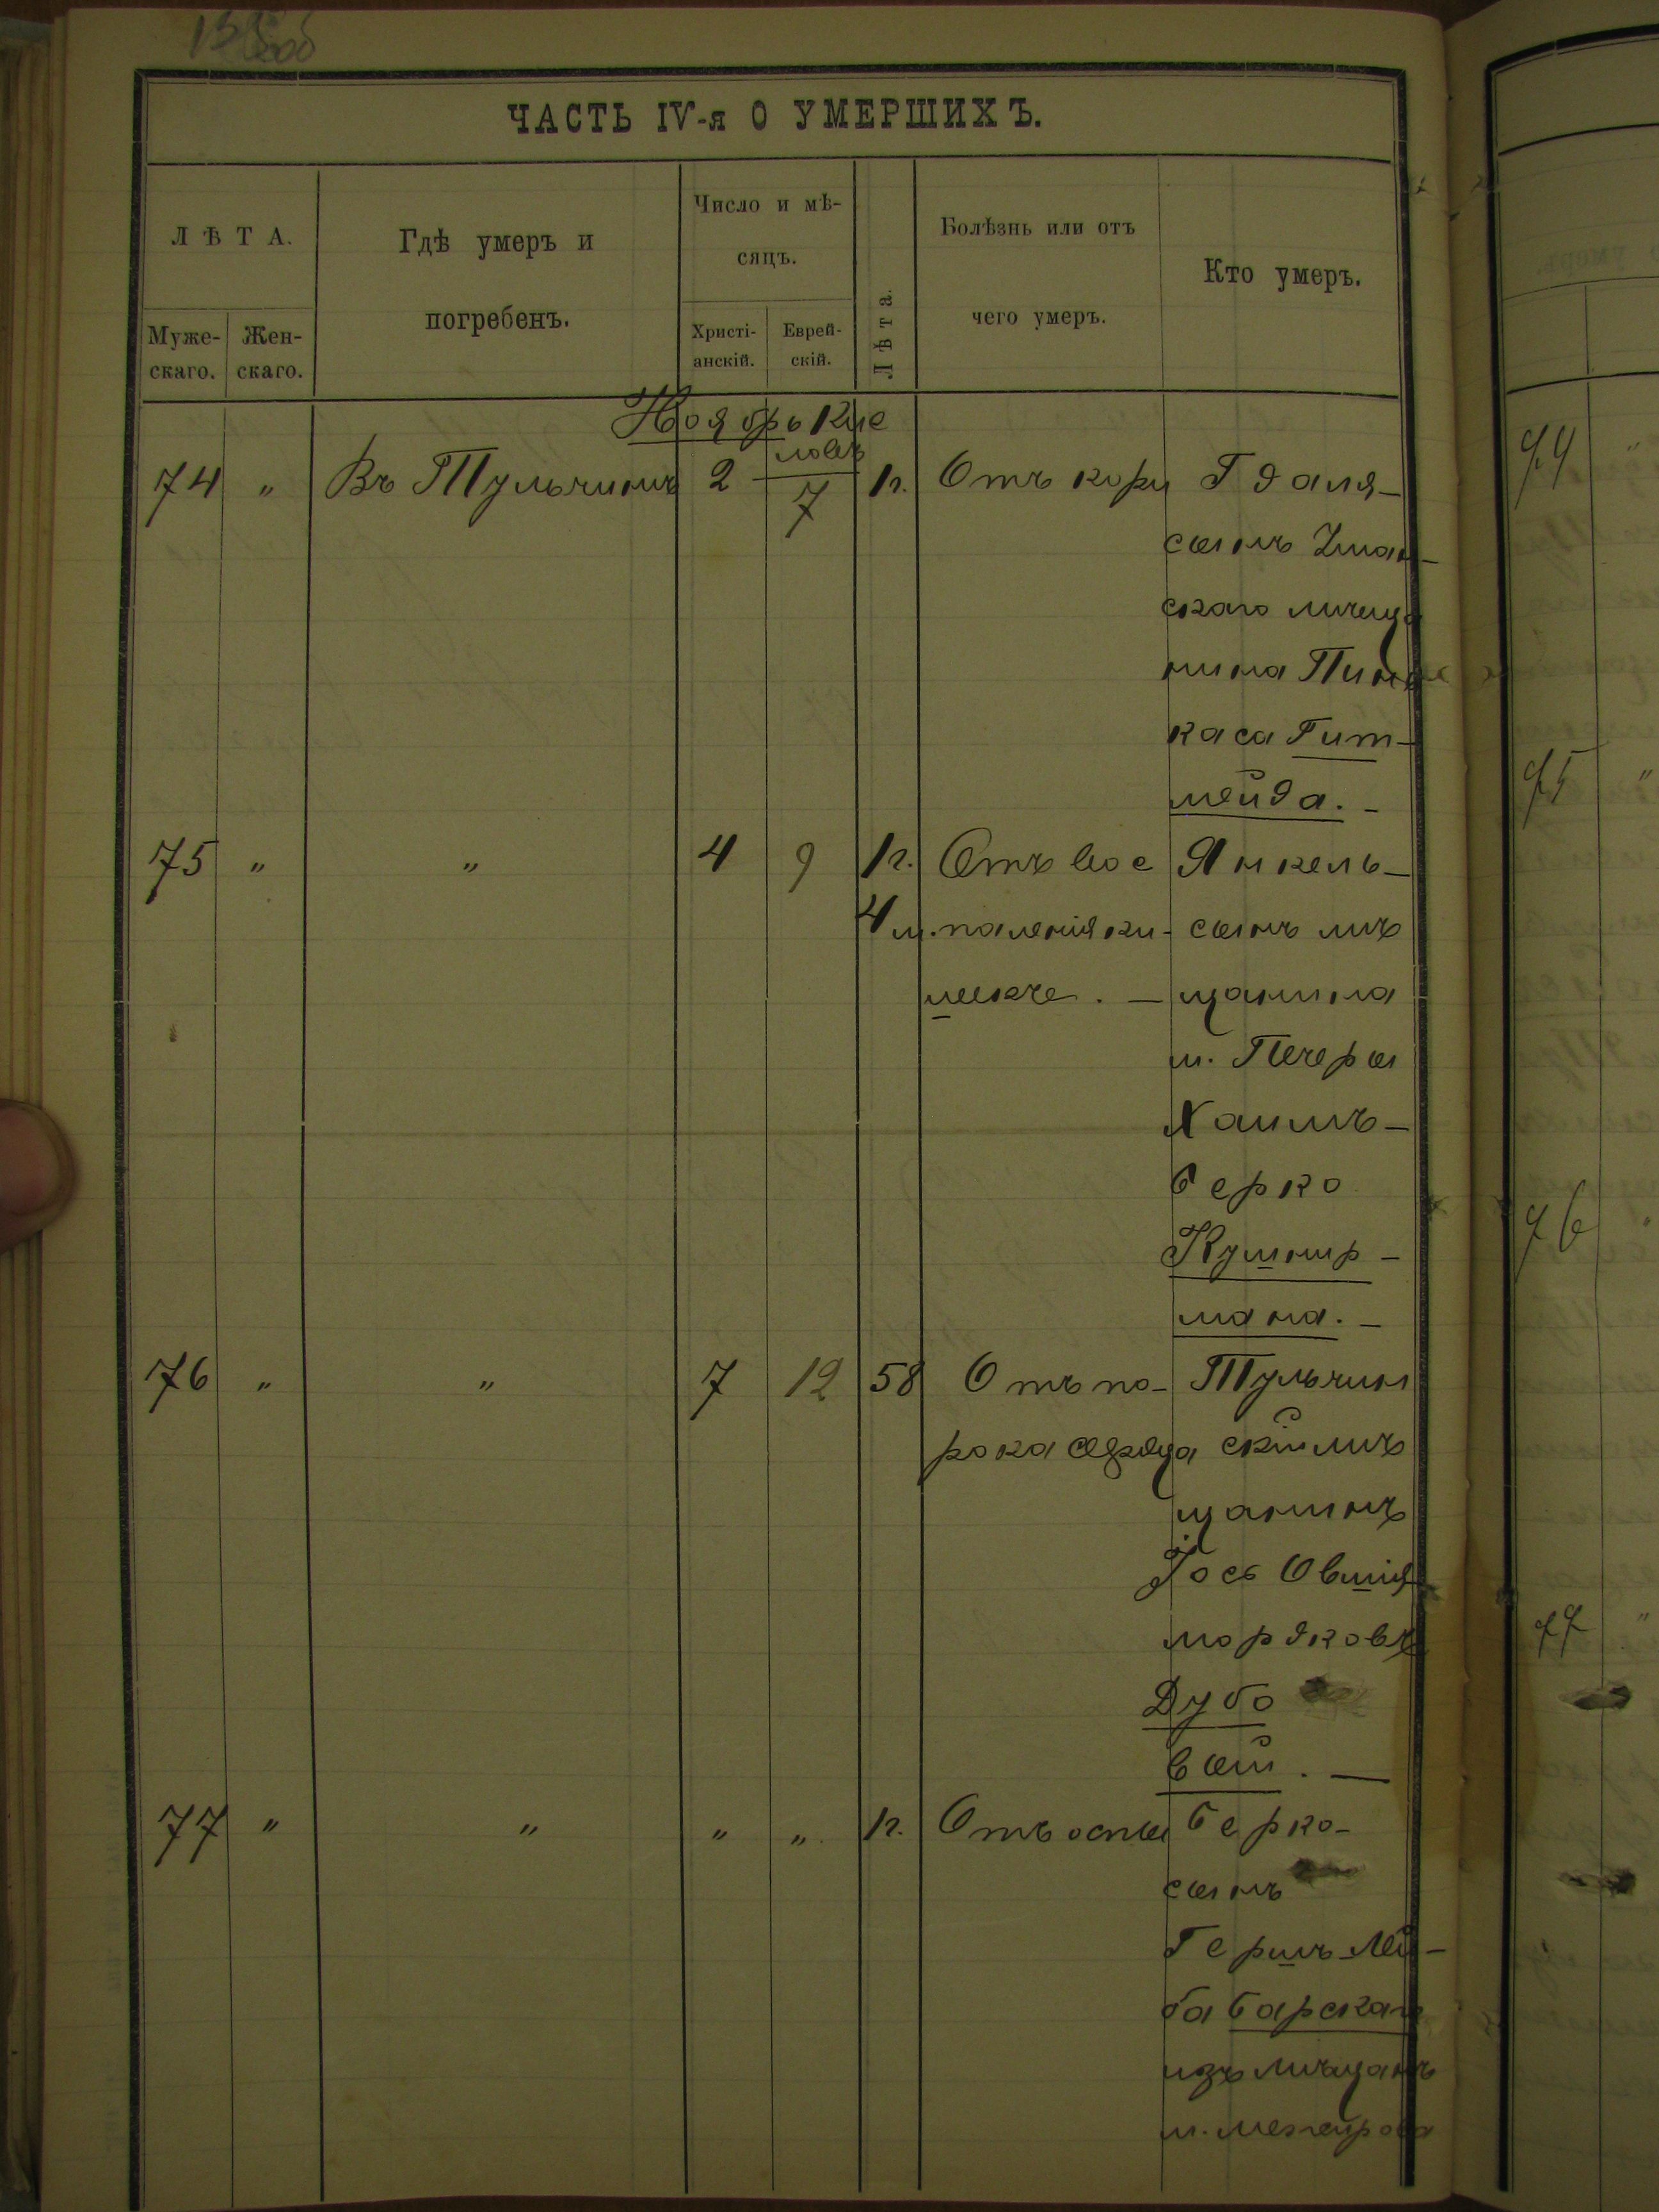 ЧАСТЬ IV-я О УМЕРШИХЪ.
ЛѢТА.
Муже-
скаго.
Жен-
скаго.
Гдѣ умеръ и
погребенъ.
Число и мѣ-
сяцъ.
Христі-
анскій.
Еврей-
скій.
Лѣта.
Болѣзнь или отъ
чего умеръ.
Кто умеръ.
Ноябрь Кис
левъ
74 " Въ Тульчинѣ 2 7 1 г. Отъ кори Гдаля-
сынъ Уман-
скаго мѣща
нина Пин
каса Гит-
мейда. -
75 " " 4 9 1 г. Отъ вос Янкель-
4 м. паленія ки- сынъ мѣ
шекъ. - щанина
м. Печеры
Хаимъ-
Берко
Кушнир-
мана. -
76 " " 7 12 58 Отъ по- Тульчин
рока сердца скій мѣ
щанинъ
Іось Овшія
мордковъ
Дубо
вый. -
77 " " " " 1 г. Отъ оспы Берко-
сынъ
Гершъ Лей-
ба Барскаго
изъ мѣщанъ
м. Межирова
74 "
75 "
76 "
77 "